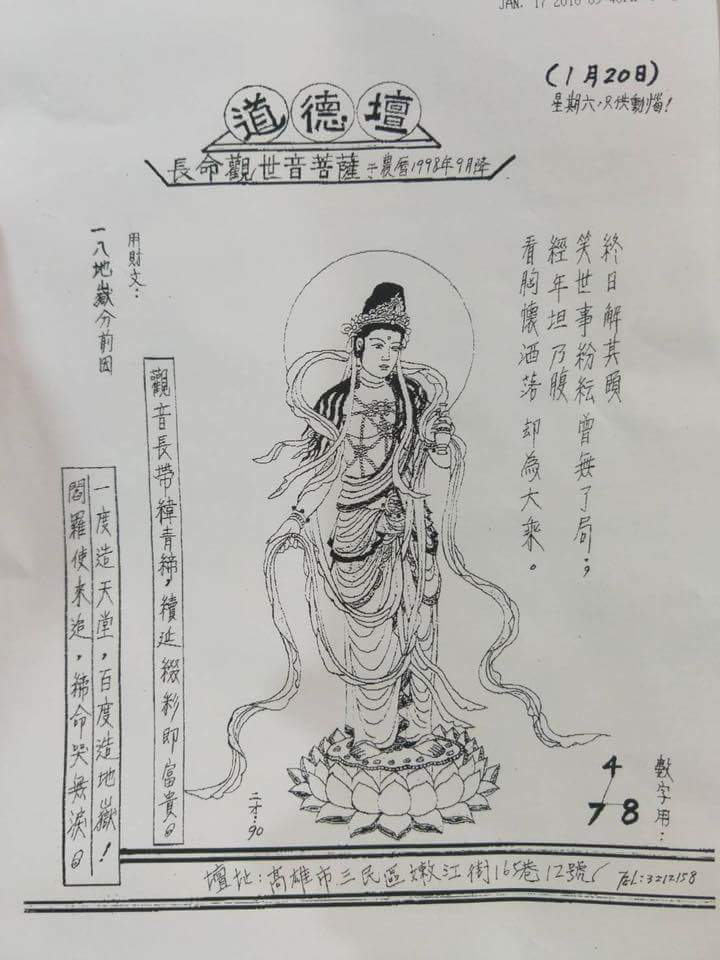 (1月20日)
星期六，只供動腦！
道德壇
長命觀世音菩薩 于農曆1998年9月降
終日解其頤
笑世事紛紜曾無了局；
經年坦乃腹
看胸懷洒落却為大乘。
用財文：
一八地嶽分前因
觀音長帶緯青締，續延綴彩即富貴。
一度造天堂，百度造地嶽！
閻羅使來追，締命哭無淚。
二才：90
數字用：
4
7 8
壇地：高雄市三民區嫩江街165巷12號
TEL:3212158